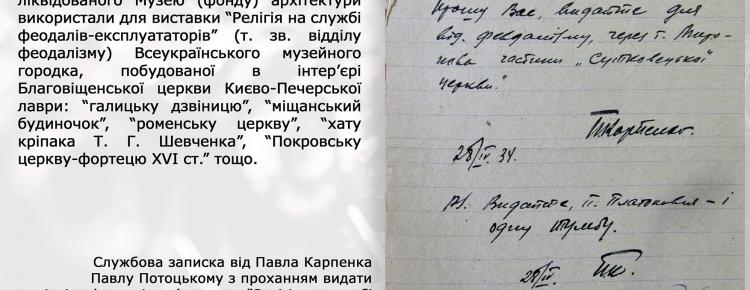 ліквідованого Музею (фонду) архітектури
використали для виставки “Релігія на службі
феодалів-експлуататорів” (т. зв. відділу
феодалізму) Всеукраїнського музейного
городка, побудованої в інтер’єрі
Благовіщенської церкви Києво-Печерської
лаври: “галицьку дзвіницю”, “міщанський
будиночок”, “роменську церкву”, “хату
кріпака Т. Г. Шевченка”, “Покровську
церкву-фортецю XVI ст.” тощо.
Службова записка від Павла Карпенка
Павлу Потоцькому з проханням видати
Прошу Вас, видайте для
від. февдалізму, через т. Миро-
нова частини „Сутковецької
церкви.”
П. Карпенко.
28/IV. 34.
PS. Видайте, П. Платонович – і
одну тумбу.
28/IV ПК.